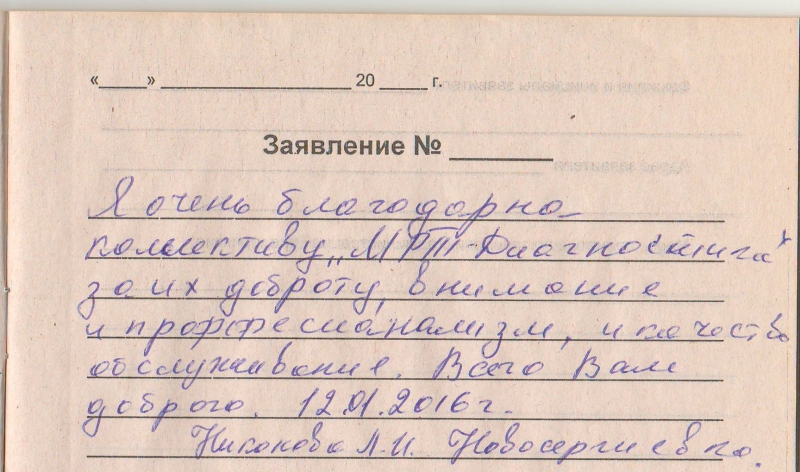 «____» ____________________ 20 _____ г.
Заявление № _______
Я очень благодарна
коллективу „МРТ-Диагностика"
за их доброту, внимание
и профессионализм, и качество
обслуживание. Всего Вам
доброго. 12.01.2016 г.
Никонова Л.И. Новосергиевка.